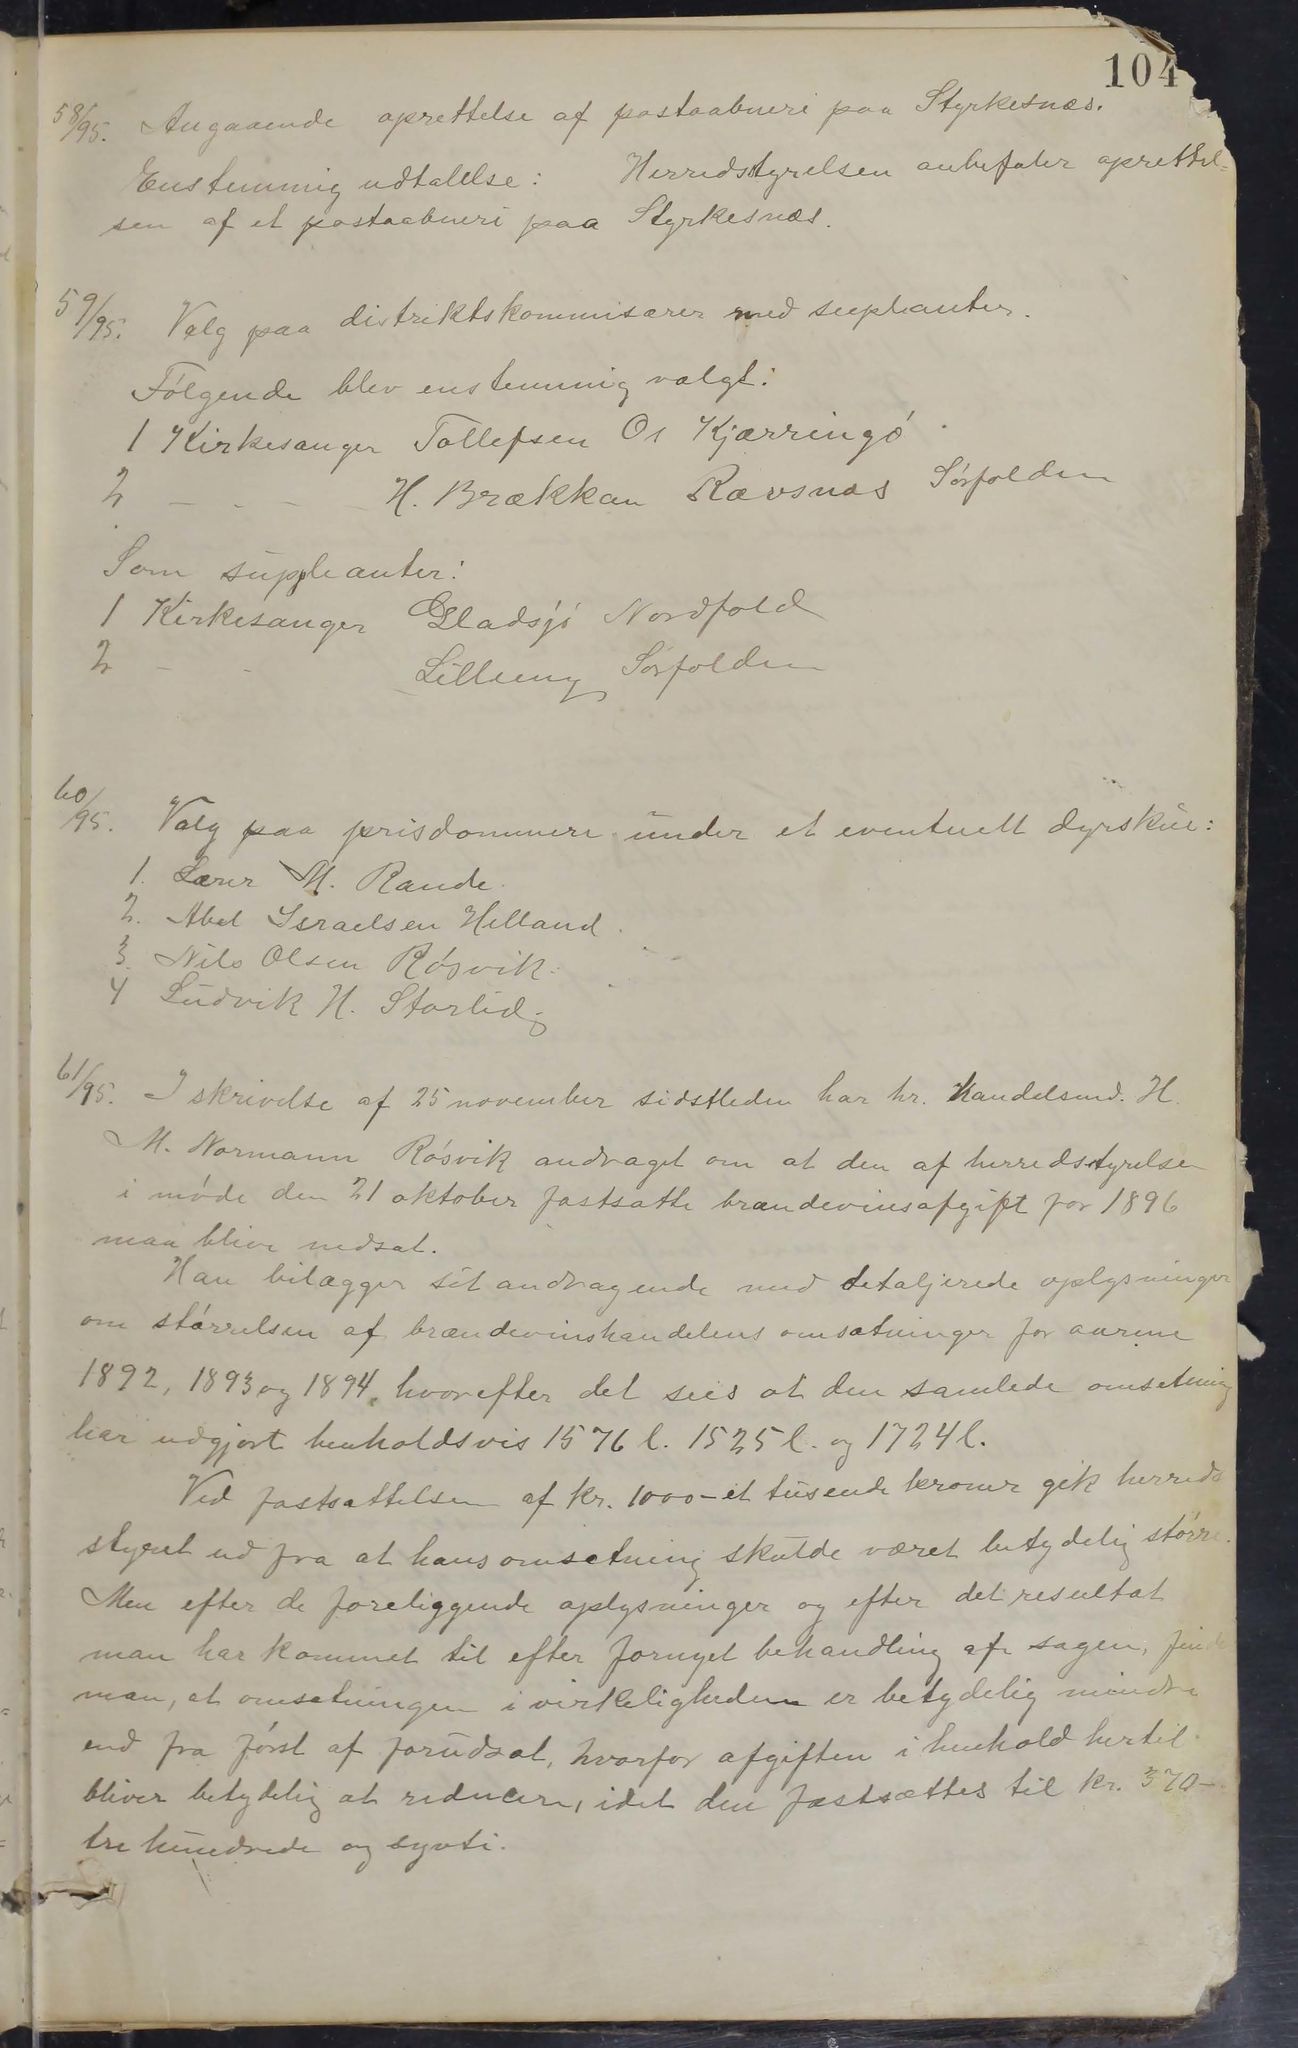 104
58/95. Angaaende oprettelse af postaabneri paa Styrkesnæs.
Enstemmig udtalelse: Herredstyrelsen anbefaler oprettel-
sen af et postaabneri paa Styrkesnæs.
59/95. Valg paa distriktskommisærer med supleanter.
Følgende blev enstemmig valgt:
1 Kirkesanger Tollefsen Os Kjærringø
2 - - - H. Brækkan Rævsnæs Sørfolden
Som suppleanter:
1 Kirkesanger Gladsjø Nordfold
2 - - Lilleeng Sørfolden
60/95. Valg paa prisdommere under et eventuelt dyrskue:
1. Lærer M. Rande.
2. Abel Israelsen Helland.
3. Nils Olsen Røsvik.
4 Ludvik H. Storlid.
61/95. I skrivelse af 25 november sidstleden har hr. Handelsmd. H.
M. Normann Røsvik andraget om at den af herredsstyrelsen
i møde den 21 oktober fastsatte brændevinsafgift for 1896
maa blive nedsat.
Han bilægger sit andragende med detaljerede oplysninger
om størrelsen af brændevinshandelens omsætninger for aarene
1892, 1893 og 1894, hvorefter det sees at den samlede omsetning
har udgjort henholdsvis 1576 l. 1525 l. og 1724 l.
Ved fastsættelsen af kr. 1000 - et tusende kroner gik herreds
styret ud fra at hans omsetning skulde været betydelig større.
Men efter de foreliggende oplysninger og efter det resultat
man har kommet til efter fornyet behandling af sagen, finde
man, at omsetningen i virkeligheden er betydelig mindre
end fra først af forudsat, hvorfor afgiften i henhold hertil
bliver betydelig at reducere, idet den fastsættes til kr. 370 -
tre hundrede og sytti.